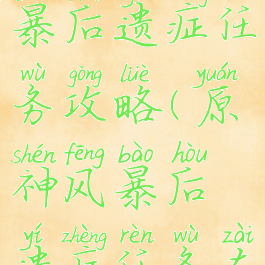 暴后遗症任
wù gōng lüè yuán
务攻略(原
shén fēng bào hòu
神风暴后
yí zhèng rèn wù zài
遗症任务在